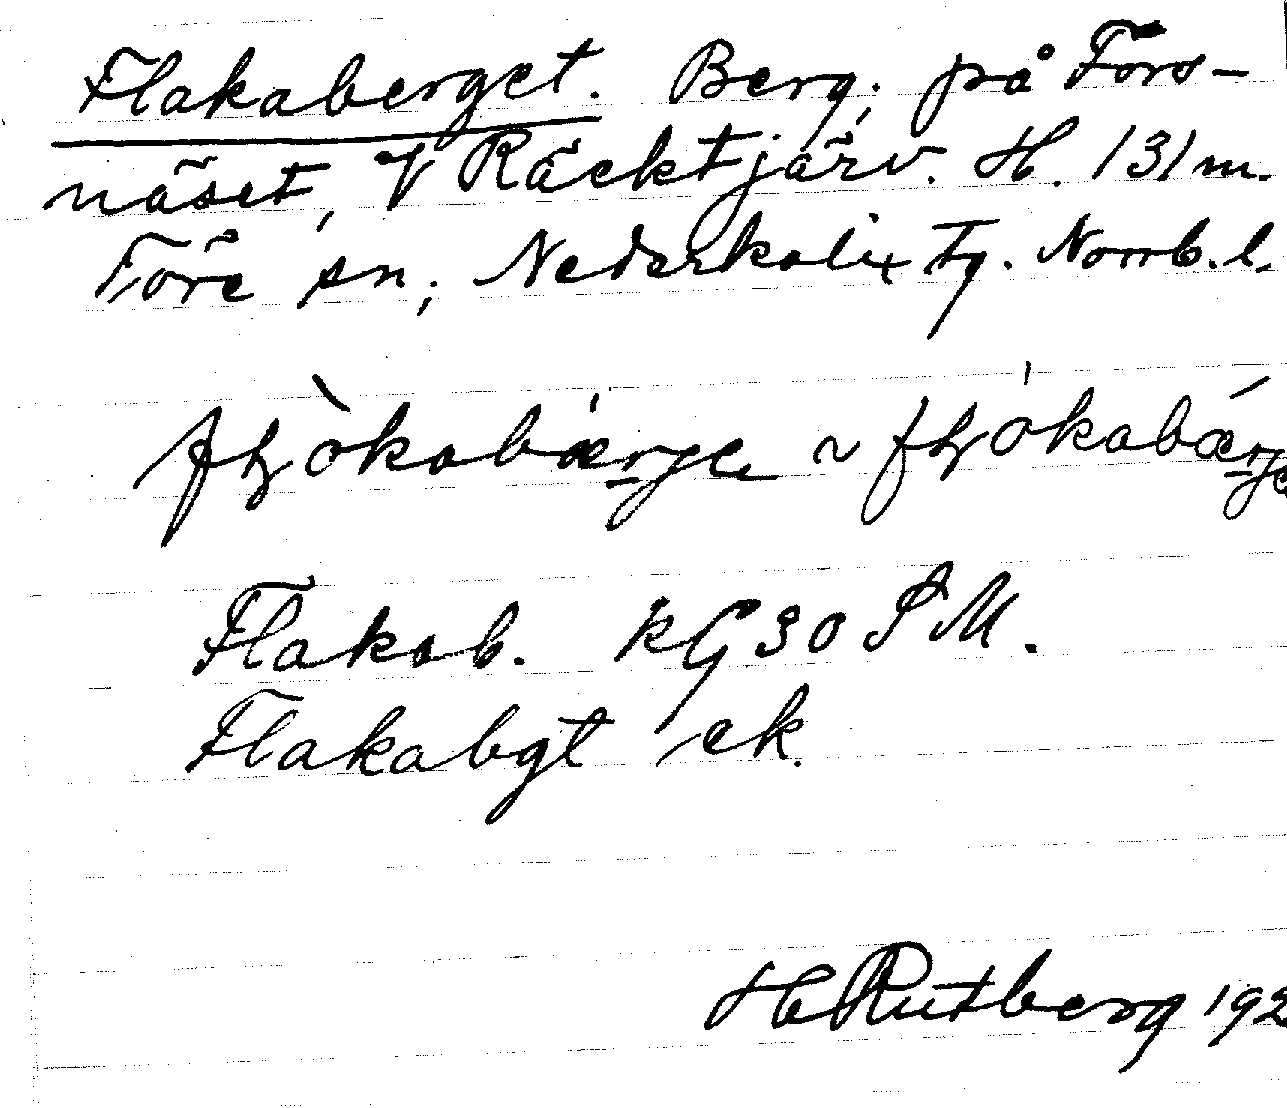 Flakaberget. Berg; på Fors-
näset, V Räcktjärv. H. 131 m.
Töre sn; Nederkalix tg. Norrb. l.
Flakab. KG 30 SM.
Flakabgt ek.
H Rutberg 192